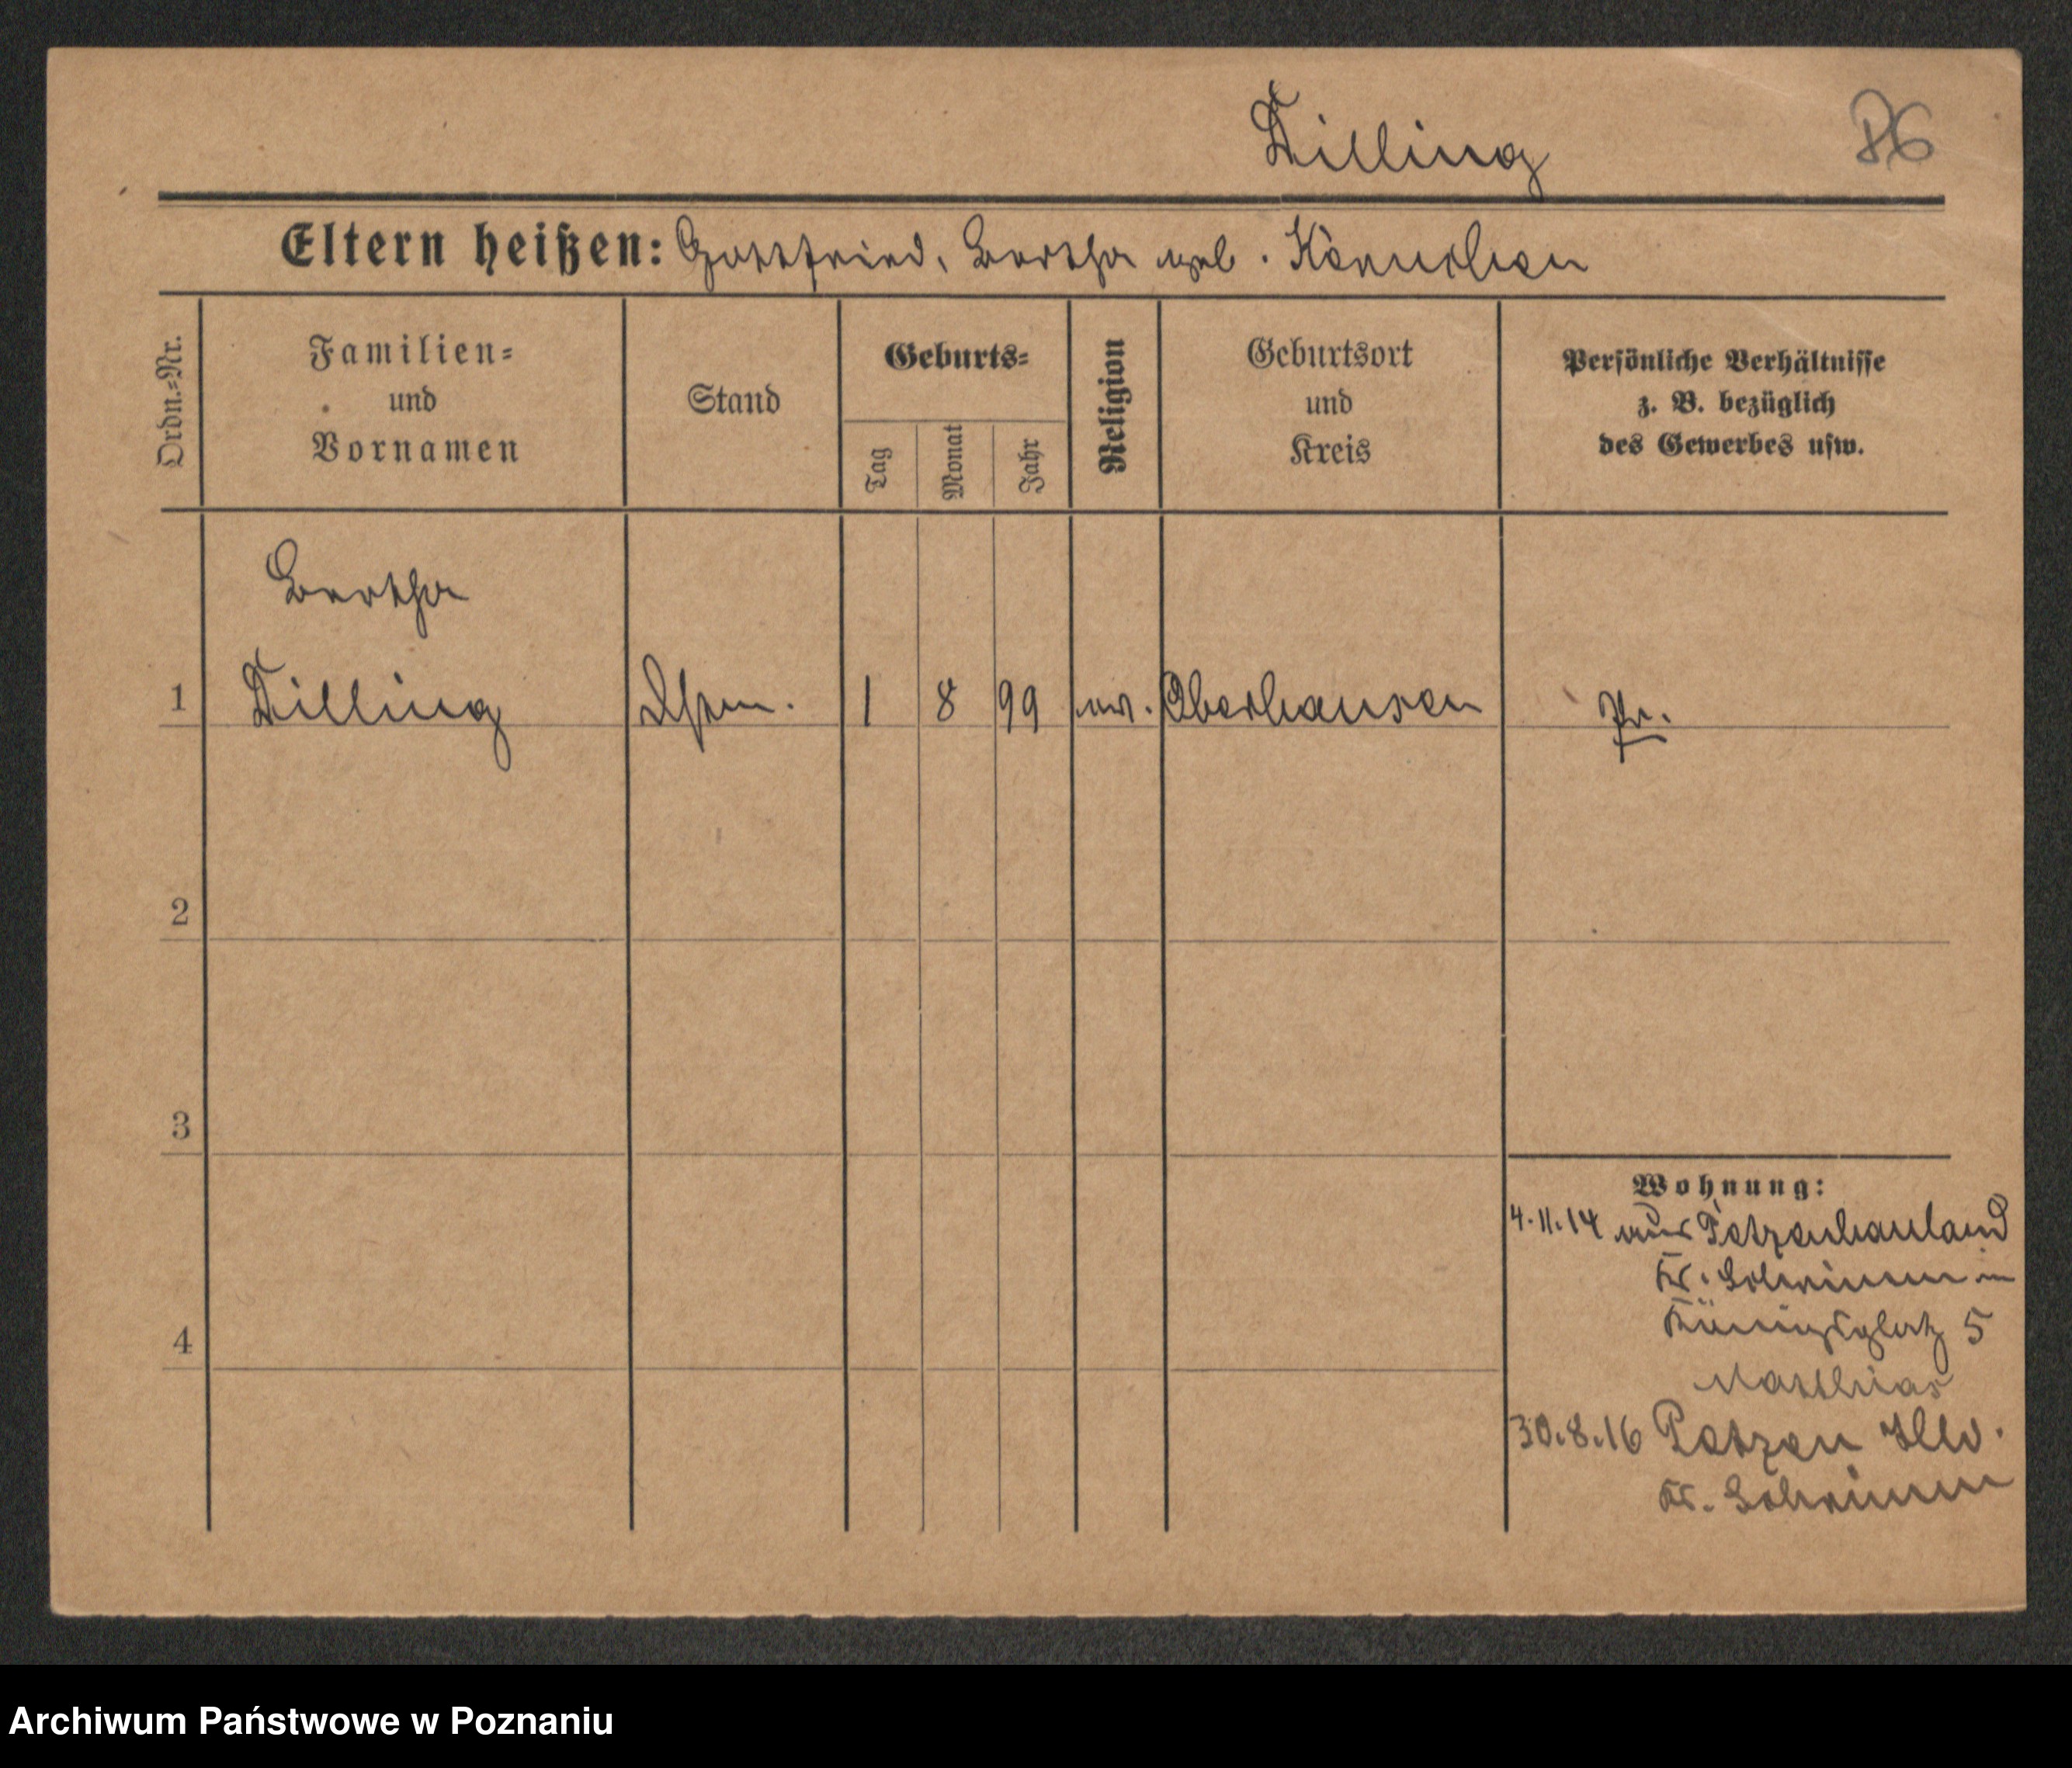 Dilling
Eltern heißen: Gottfried, Bertha geb. Könnchen
Ordn.-Nr.
Familien-
und
Vornamen
Stand
Geburts-
Tag
Monat
Jahr
Religion
Geburtsort
und
Kreis
Persönliche Verhältnisse
z. B. bezüglich
des Gewerbes usw.
Bertha
1 Dilling 1 8 99 ev. Oberhausen Pr.
2
3
4
Wohnung:
4.11.14 aus Petzenhauland
Kr. Schrimm in
Königsplatz 5
Matthias
30.8.16 Petzen Hld.
Kr. Schrimm
Archiwum Państwowe w Poznaniu